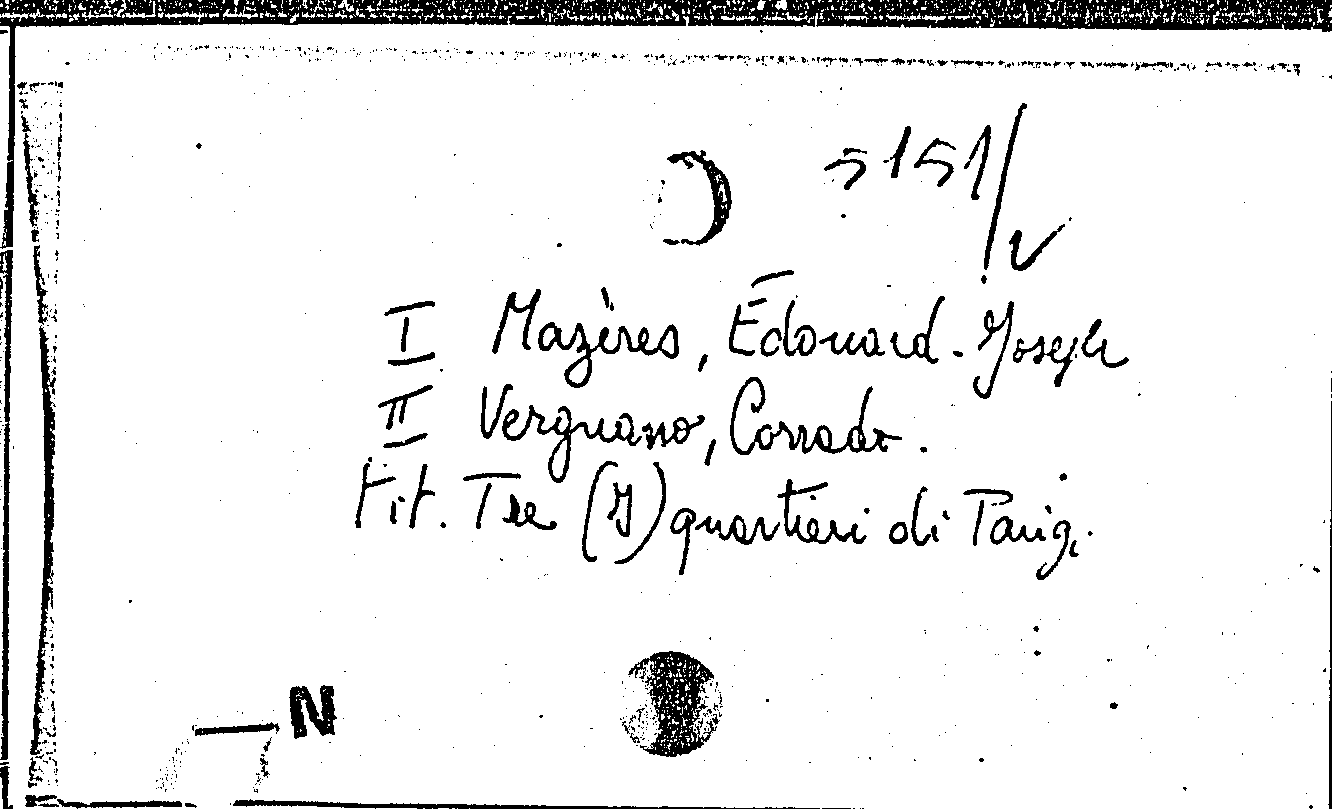 5151/V
I Mazères, Édouard-Joseph
II Vergnano, Corrado.
Tit. Tre (I) quartieri di Parigi.
N